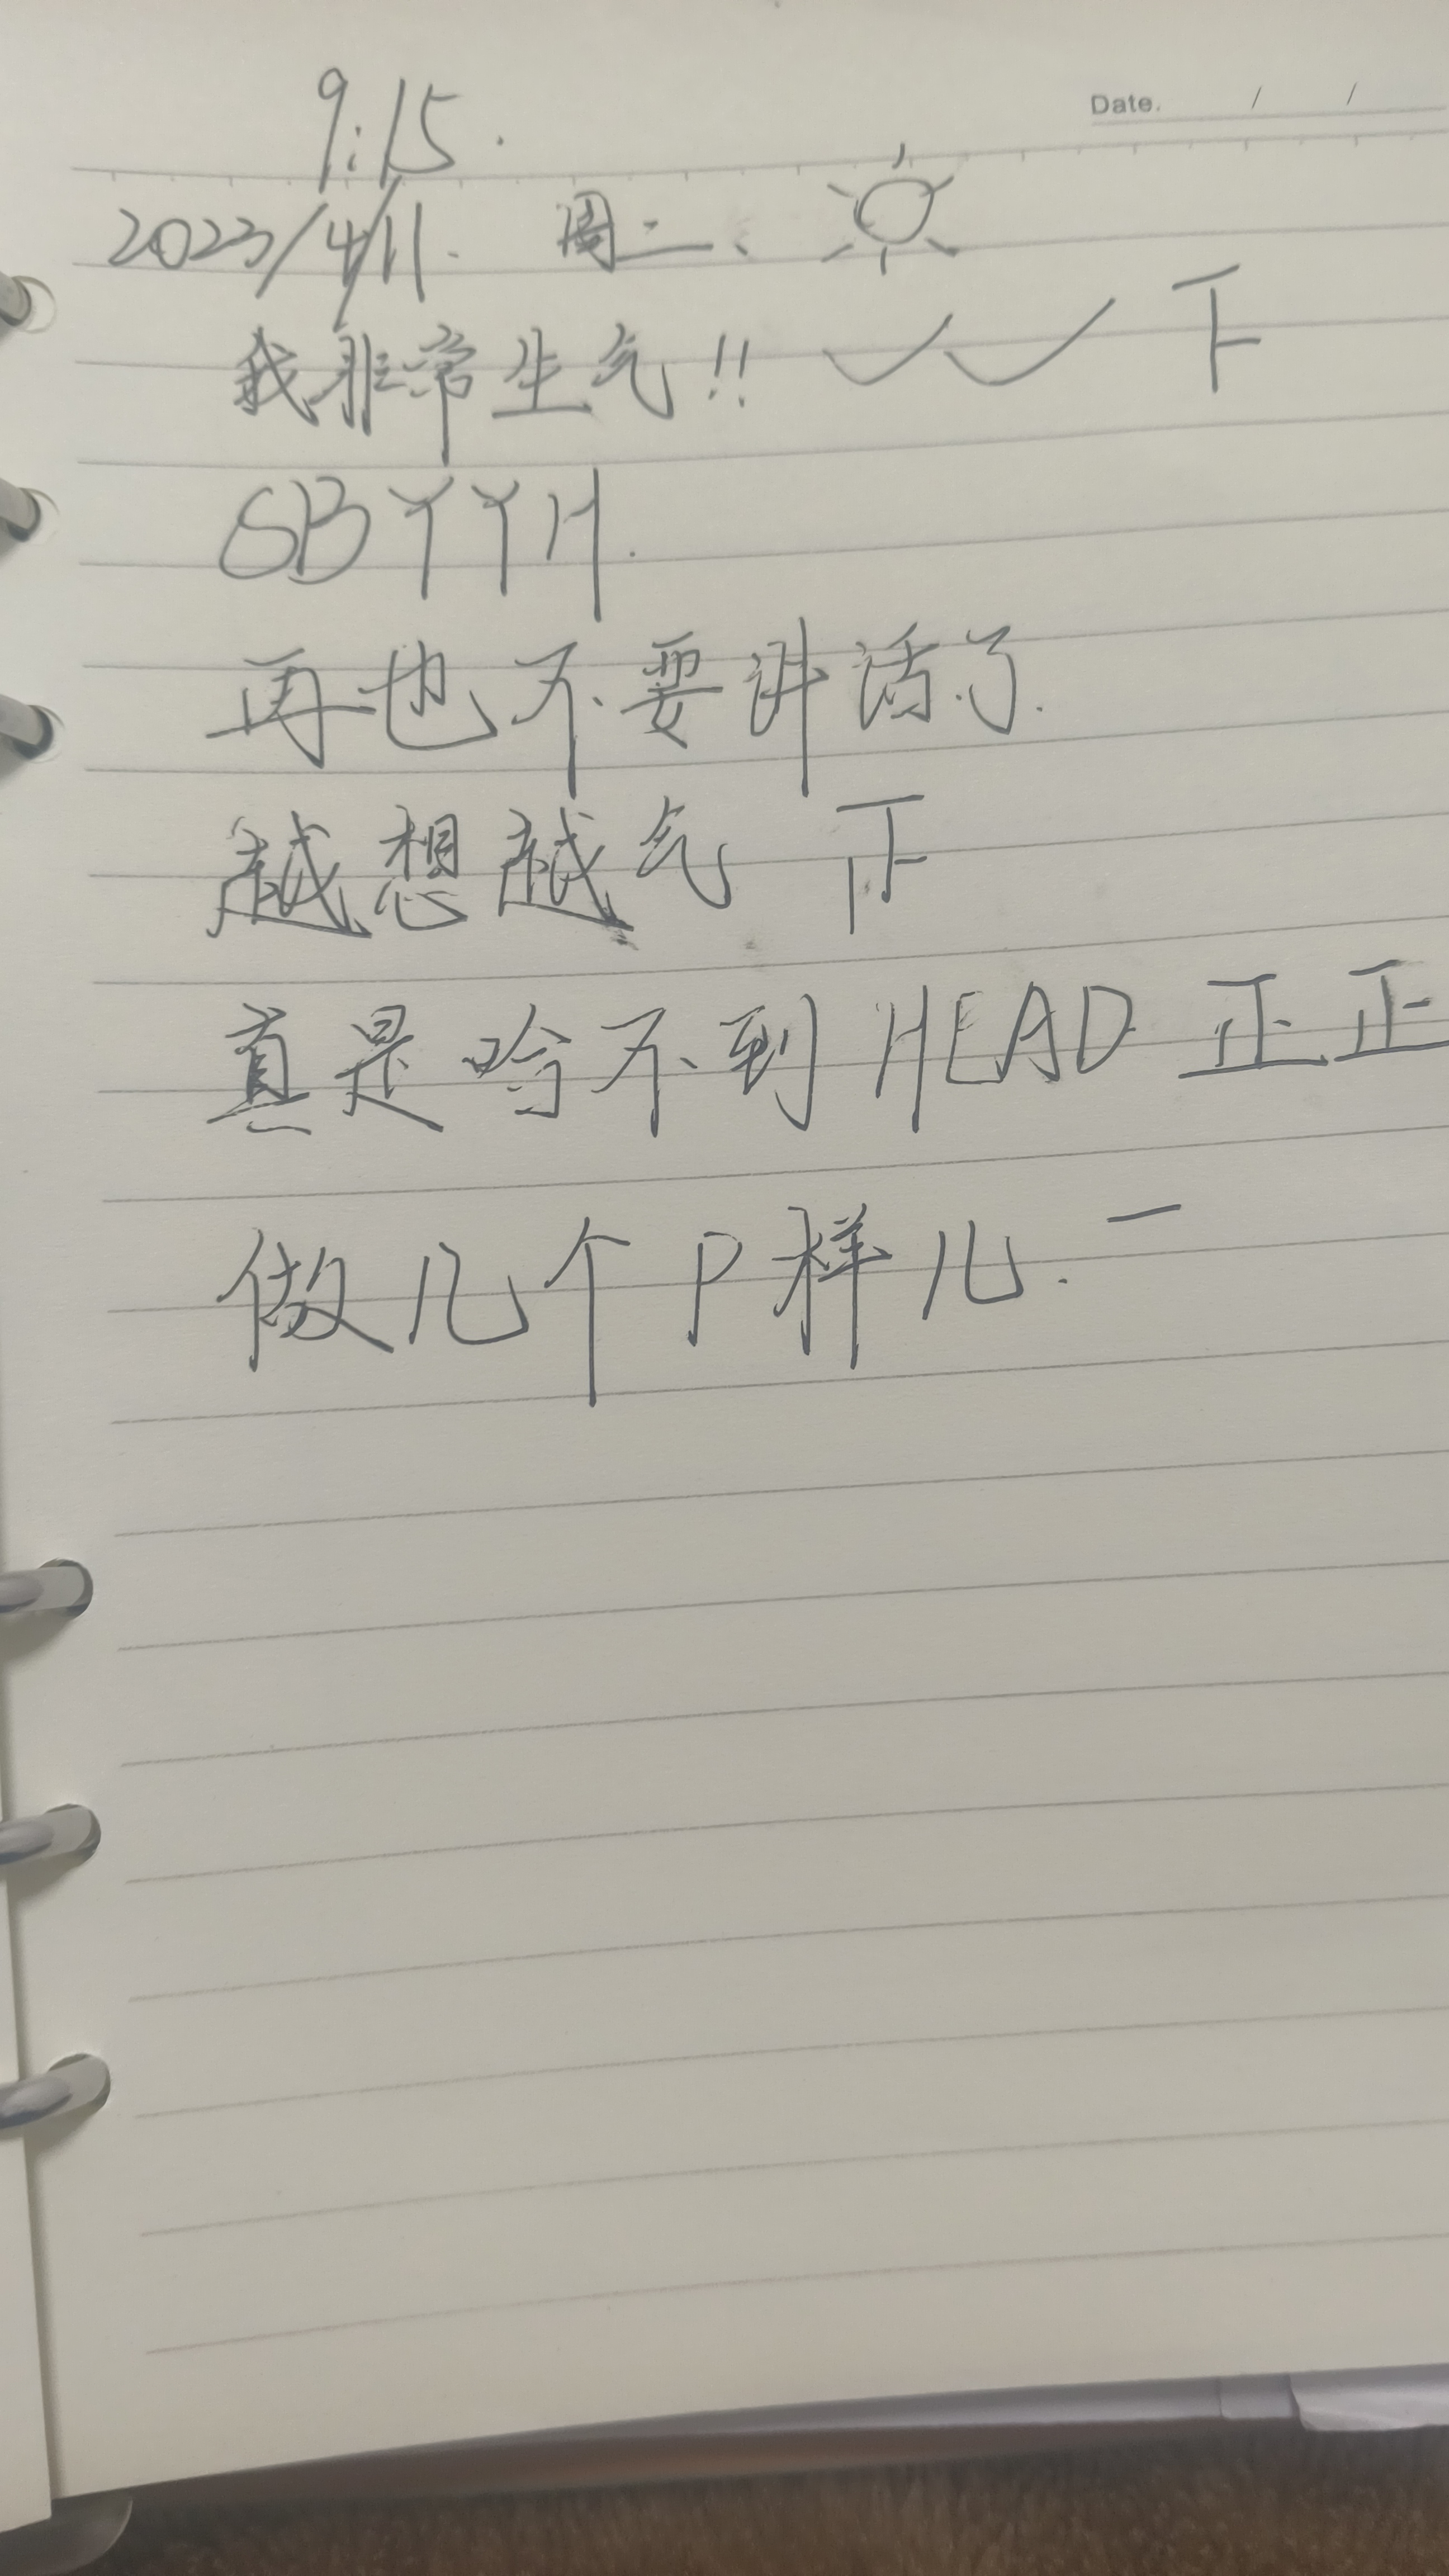 9:15.
Date. / /
2023/4/11. 周二、
我非常生气!! 下
SBYYH.
再也不要讲话了.
越想越气 正
真是哈不到HEAD 正正
做几个P样儿. 一